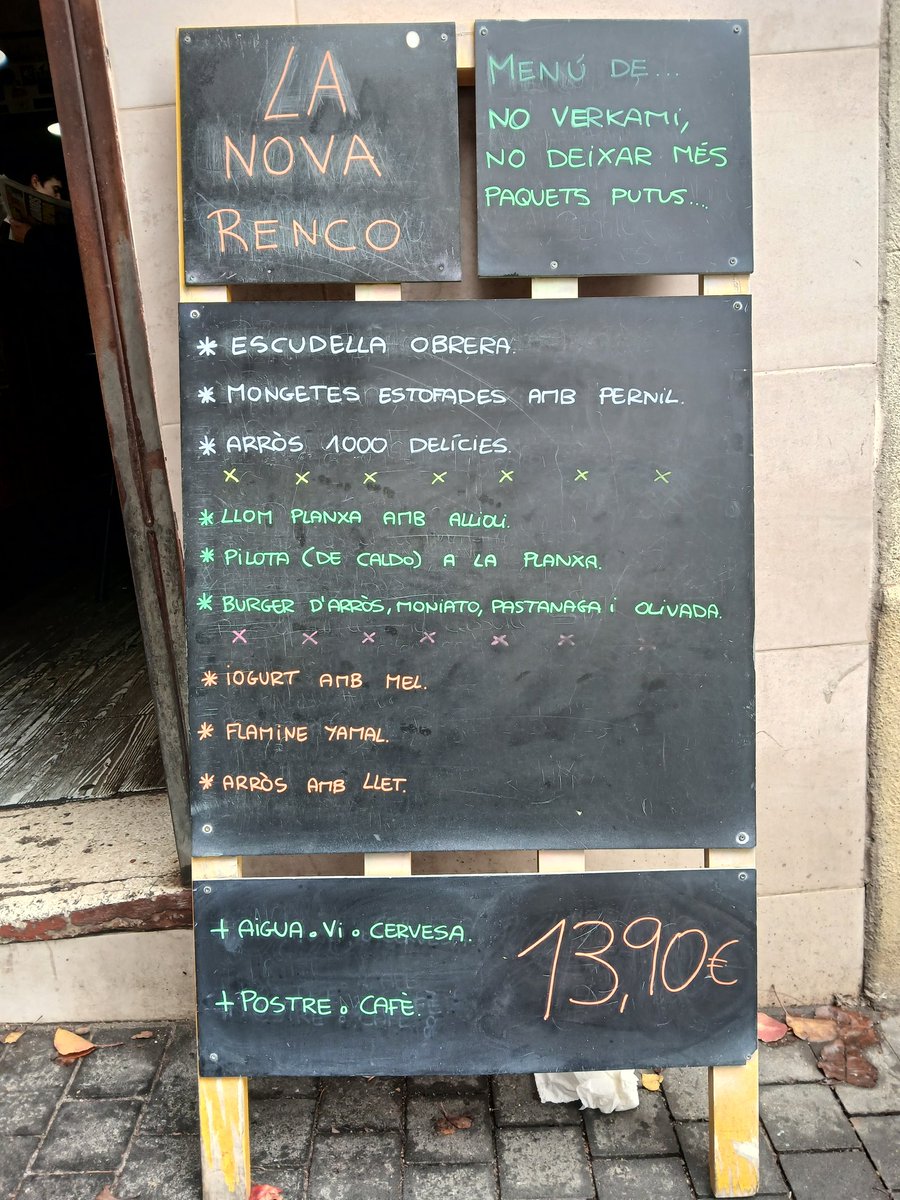 LA
NOVA
RENCO
MENÚ DE...
NO VERKAMI,
NO DEIXAR MÉS
PAQUETS PUTUS...
* ESCUDELLA OBRERA.
* MONGETES ESTOFADES AMB PERNIL.
* ARRÒS 1000 DELÍCIES.
x x x x x x x
* LLOM PLANXA AMB ALLIOLI.
* PILOTA (DE CALDO) A LA PLANXA.
* BURGER D'ARRÒS, MONIATO, PASTANAGA I OLIVADA.
x x x x x x
* IOGURT AMB MEL.
* FLAMINE YAMAL.
* ARRÒS AMB LLET.
+ AIGUA o VI o CERVESA.
+ POSTRE o CAFÈ.
13,90€